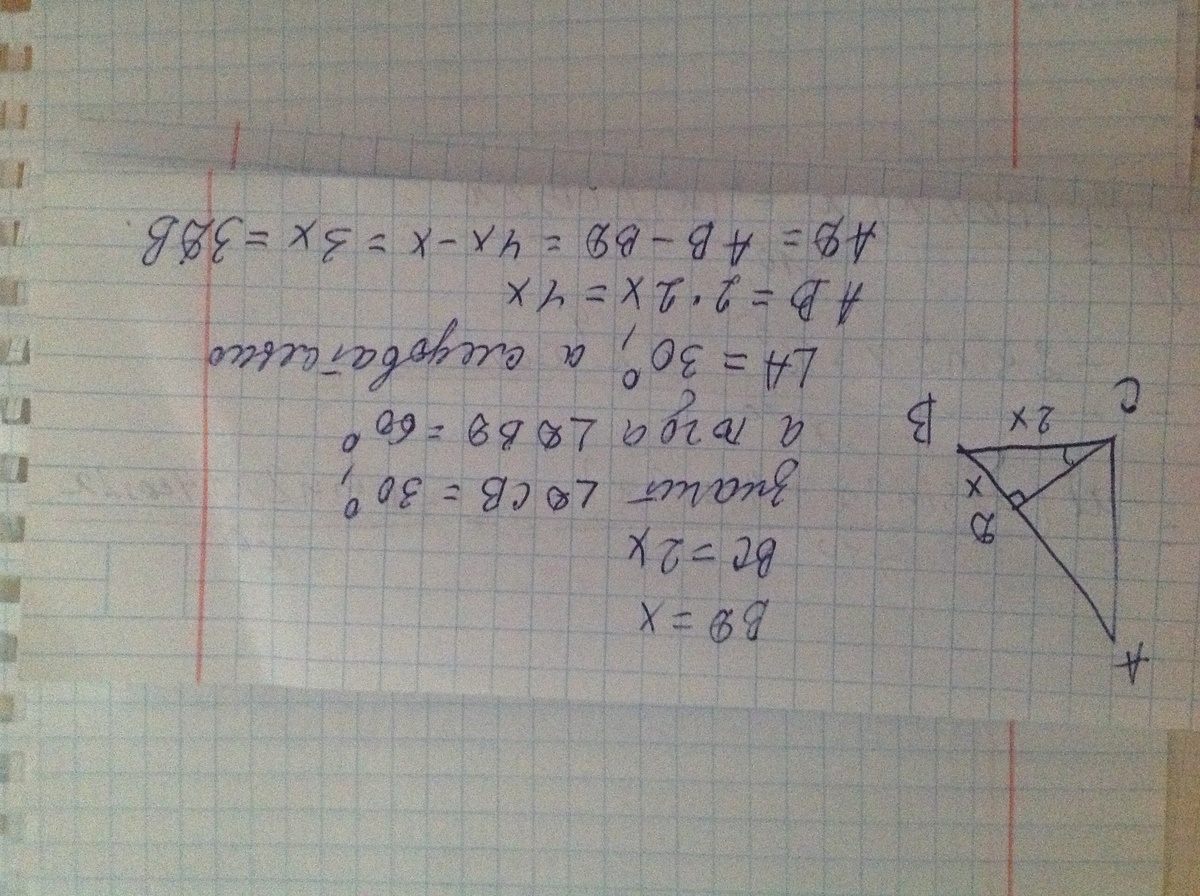 A
D
x
2x
C
B
BD = x
BC = 2x
значит ∠DCB = 30°,
а тогда ∠DBD = 60°
∠A = 30°, а следовательно
AB = 2·2x = 4x
AD = AB - BD = 4x - x = 3x = 3DB.